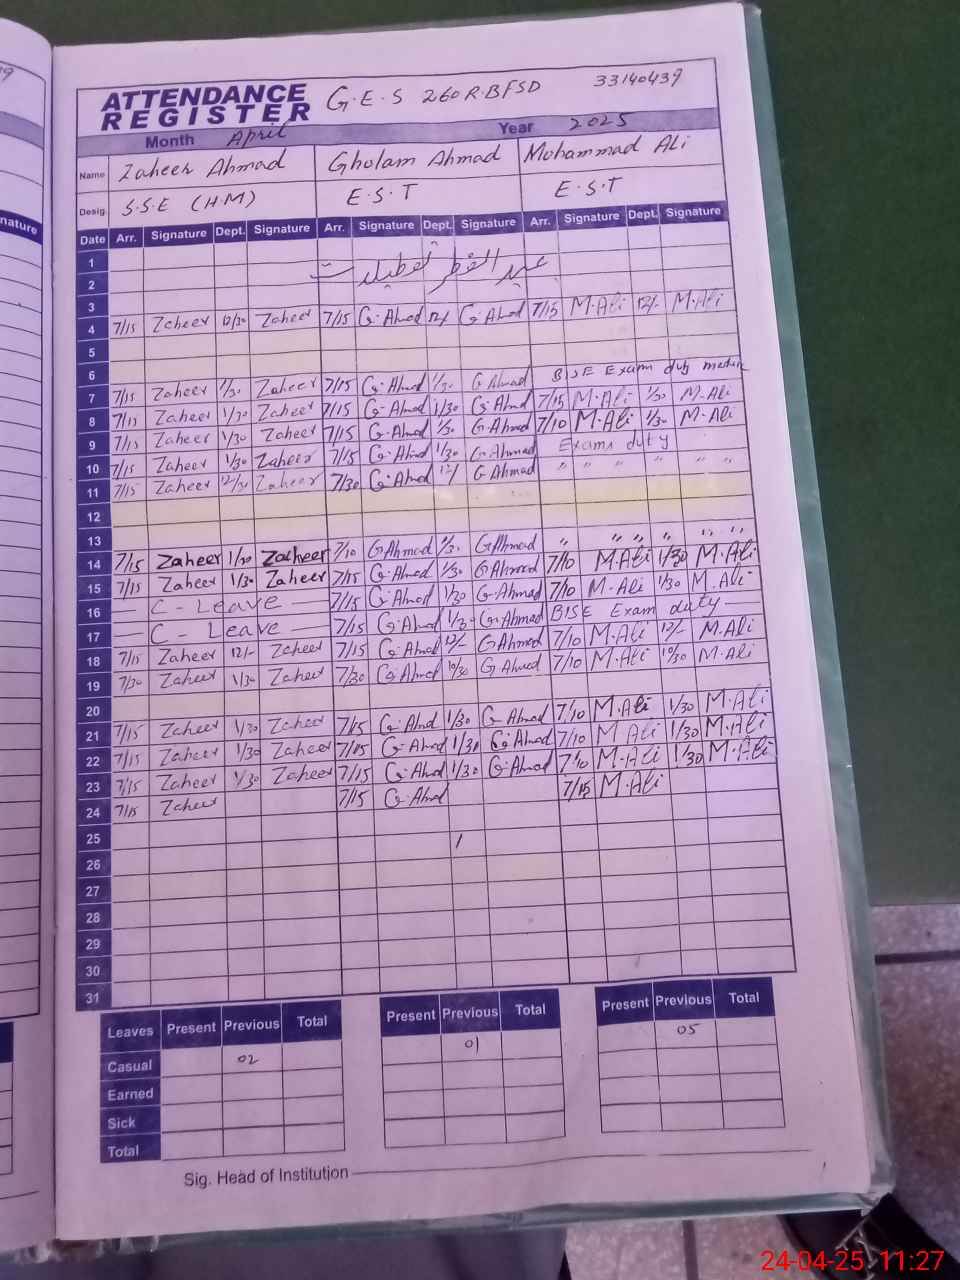 ATTENDANCE REGISTER G.E.S 260 R.B FSD 33140439
Month April Year 2025
Name Zaheer Ahmad Gholam Ahmad Mohammad Ali
Desig. S.S.E (H.M) E.S.T E.S.T
Date Arr. Signature Dept. Signature Arr. Signature Dept. Signature Arr. Signature Dept. Signature
1
2 عيد الفطر تعطيلات
3
4 7/15 Zaheer 12/30 Zaheer 7/15 G.Ahmad 12/ G.Ahmad 7/15 M.Ali 12/- M.Ali
5
6
7 7/15 Zaheer 1/30 Zaheer 7/15 G.Ahmad 1/30 G Ahmad BISE Exam duty
8 7/15 Zaheer 1/30 Zaheer 7/15 G.Ahmad 1/30 G.Ahmad 7/15 M.Ali 1/30 M.Ali
9 7/15 Zaheer 1/30 Zaheer 7/15 G.Ahmad 1/30 G.Ahmad 7/10 M.Ali 1/30 M.Ali
10 7/15 Zaheer 1/30 Zaheer 7/15 G.Ahmad 1/30 G.Ahmad Exams duty
11 7/15 Zaheer 12/30 Zaheer 7/30 G.Ahmad 12/ G Ahmad " " " " " "
12
13
14 7/15 Zaheer 1/30 Zaheer 7/10 G Ahmad 1/30 G Ahmad " " " " " "
15 7/15 Zaheer 1/30 Zaheer 7/15 G.Ahmad 1/30 G Ahmad 7/10 M.Ali 1/30 M.Ali
16 — C - Leave — 7/15 G.Ahmad 1/30 G.Ahmad 7/10 M.Ali 1/30 M.Ali
17 — C - Leave — 7/15 G.Ahmad 1/30 G.Ahmad BISE Exam duty —
18 7/15 Zaheer 12/- Zaheer 7/15 G.Ahmad 12/- G Ahmad 7/10 M.Ali 12/- M.Ali
19 7/30 Zaheer 1/30 Zaheer 7/30 G.Ahmad 10/30 G Ahmad 7/10 M.Ali 10/30 M.Ali
20
21 7/15 Zaheer 1/30 Zaheer 7/15 G.Ahmad 1/30 G.Ahmad 7/10 M.Ali 1/30 M.Ali
22 7/15 Zaheer 1/30 Zaheer 7/15 G.Ahmad 1/30 G.Ahmad 7/10 M.Ali 1/30 M.Ali
23 7/15 Zaheer 1/30 Zaheer 7/15 G.Ahmad 1/30 G.Ahmad 7/10 M.Ali 1/30 M.Ali
24 7/15 Zaheer 7/15 G.Ahmad 7/15 M.Ali
25
26
27
28
29
30
31
Leaves Present Previous Total Present Previous Total Present Previous Total
Casual 02 01 05
Earned
Sick
Total
Sig. Head of Institution
24-04-25 11:27